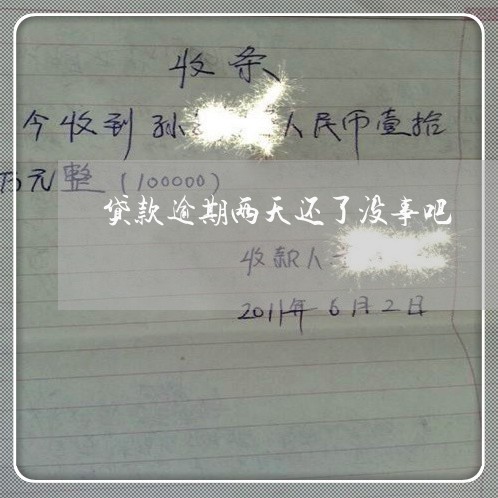 收条
今收到孙 人民币壹拾
万元整(100000)
贷款逾期两天还了没事吧
收款人
2011年6月2日